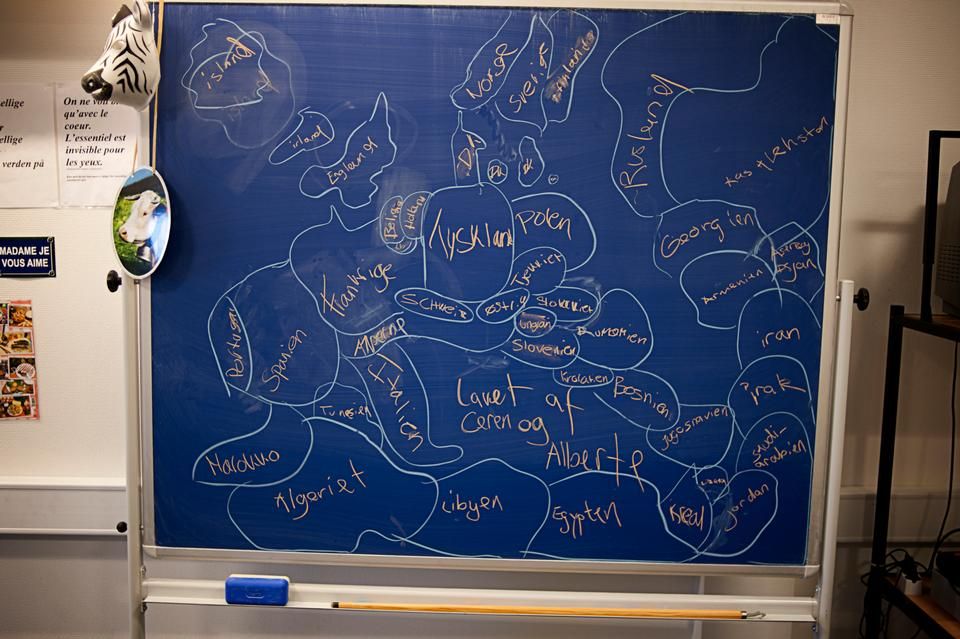 ellige
r
ellige
verden på
On ne voit b
qu'avec le
coeur.
L'essentiel est
invisible pour
les yeux.
MADAME JE
VOUS AIME
island
irland
England
Norge
Sverige
Rusland
Kastlehston
Dk
Dk
Holland
Tyskland
Polen
Georgien
Armenien
Frankrige
Schweiz
Østrig
Ungarn
Slovenien
Rumænien
Iran
Portugal
Spanien
Alperne
Italien
Kroatien
Bosnien
Jugoslavien
Irak
Saudi-
arabien
Tunesien
Lavet af
Ceren og
Alberte
Marokko
Algeriet
Libyen
Egypten
Jordan